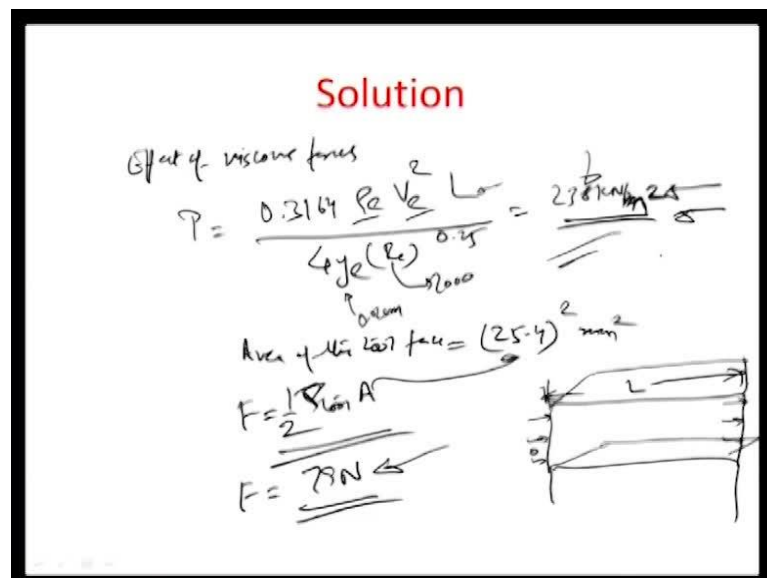 Solution
Effect of viscous forces
P = 0.3164 ρe Ve² L / 4 ye (Re)^0.25 = 238 kN/m2
Area of the tool face = (25.4)² mm²
F = 1/2 A
L
F = 79N